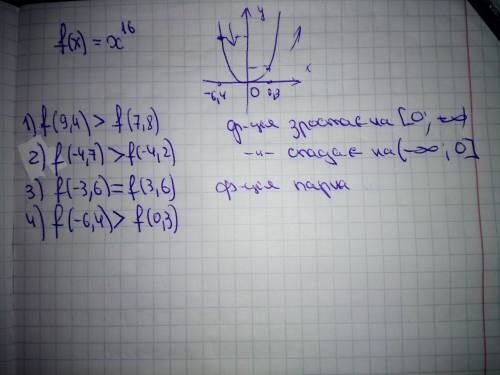 f(x) = x¹⁶
y
x
-6,4 0 0,3
1) f(9,4) > f(7,8) ф-ція зростає на [0; +∞)
2) f(-4,7) > f(-4,2) -"- спадає на (-∞; 0]
3) f(-3,6) = f(3,6) ф-ція парна
4) f(-6,4) > f(0,3)